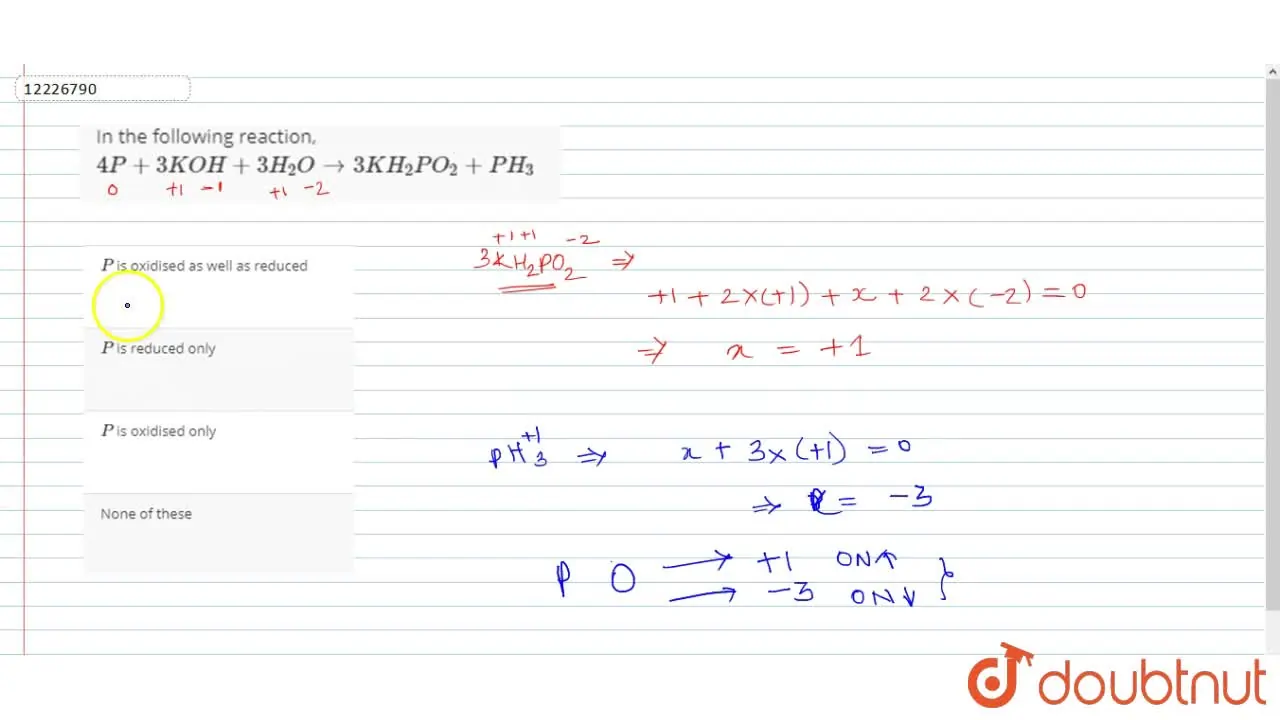 12226790
In the following reaction,
4P + 3KOH + 3H₂O → 3KH₂PO₂ + PH₃
0 +1 -1 +1 -2
P is oxidised as well as reduced
P is reduced only
P is oxidised only
None of these
+1 +1 -2
3KH₂PO₂ ⇒
+1 + 2×(+1) + x + 2×(-2) = 0
⇒ x = +1
+1
PH₃ ⇒ x + 3×(+1) = 0
⇒ = -3
P 0 → +1 ON↑ }
→ -3 ON↓
doubtnut